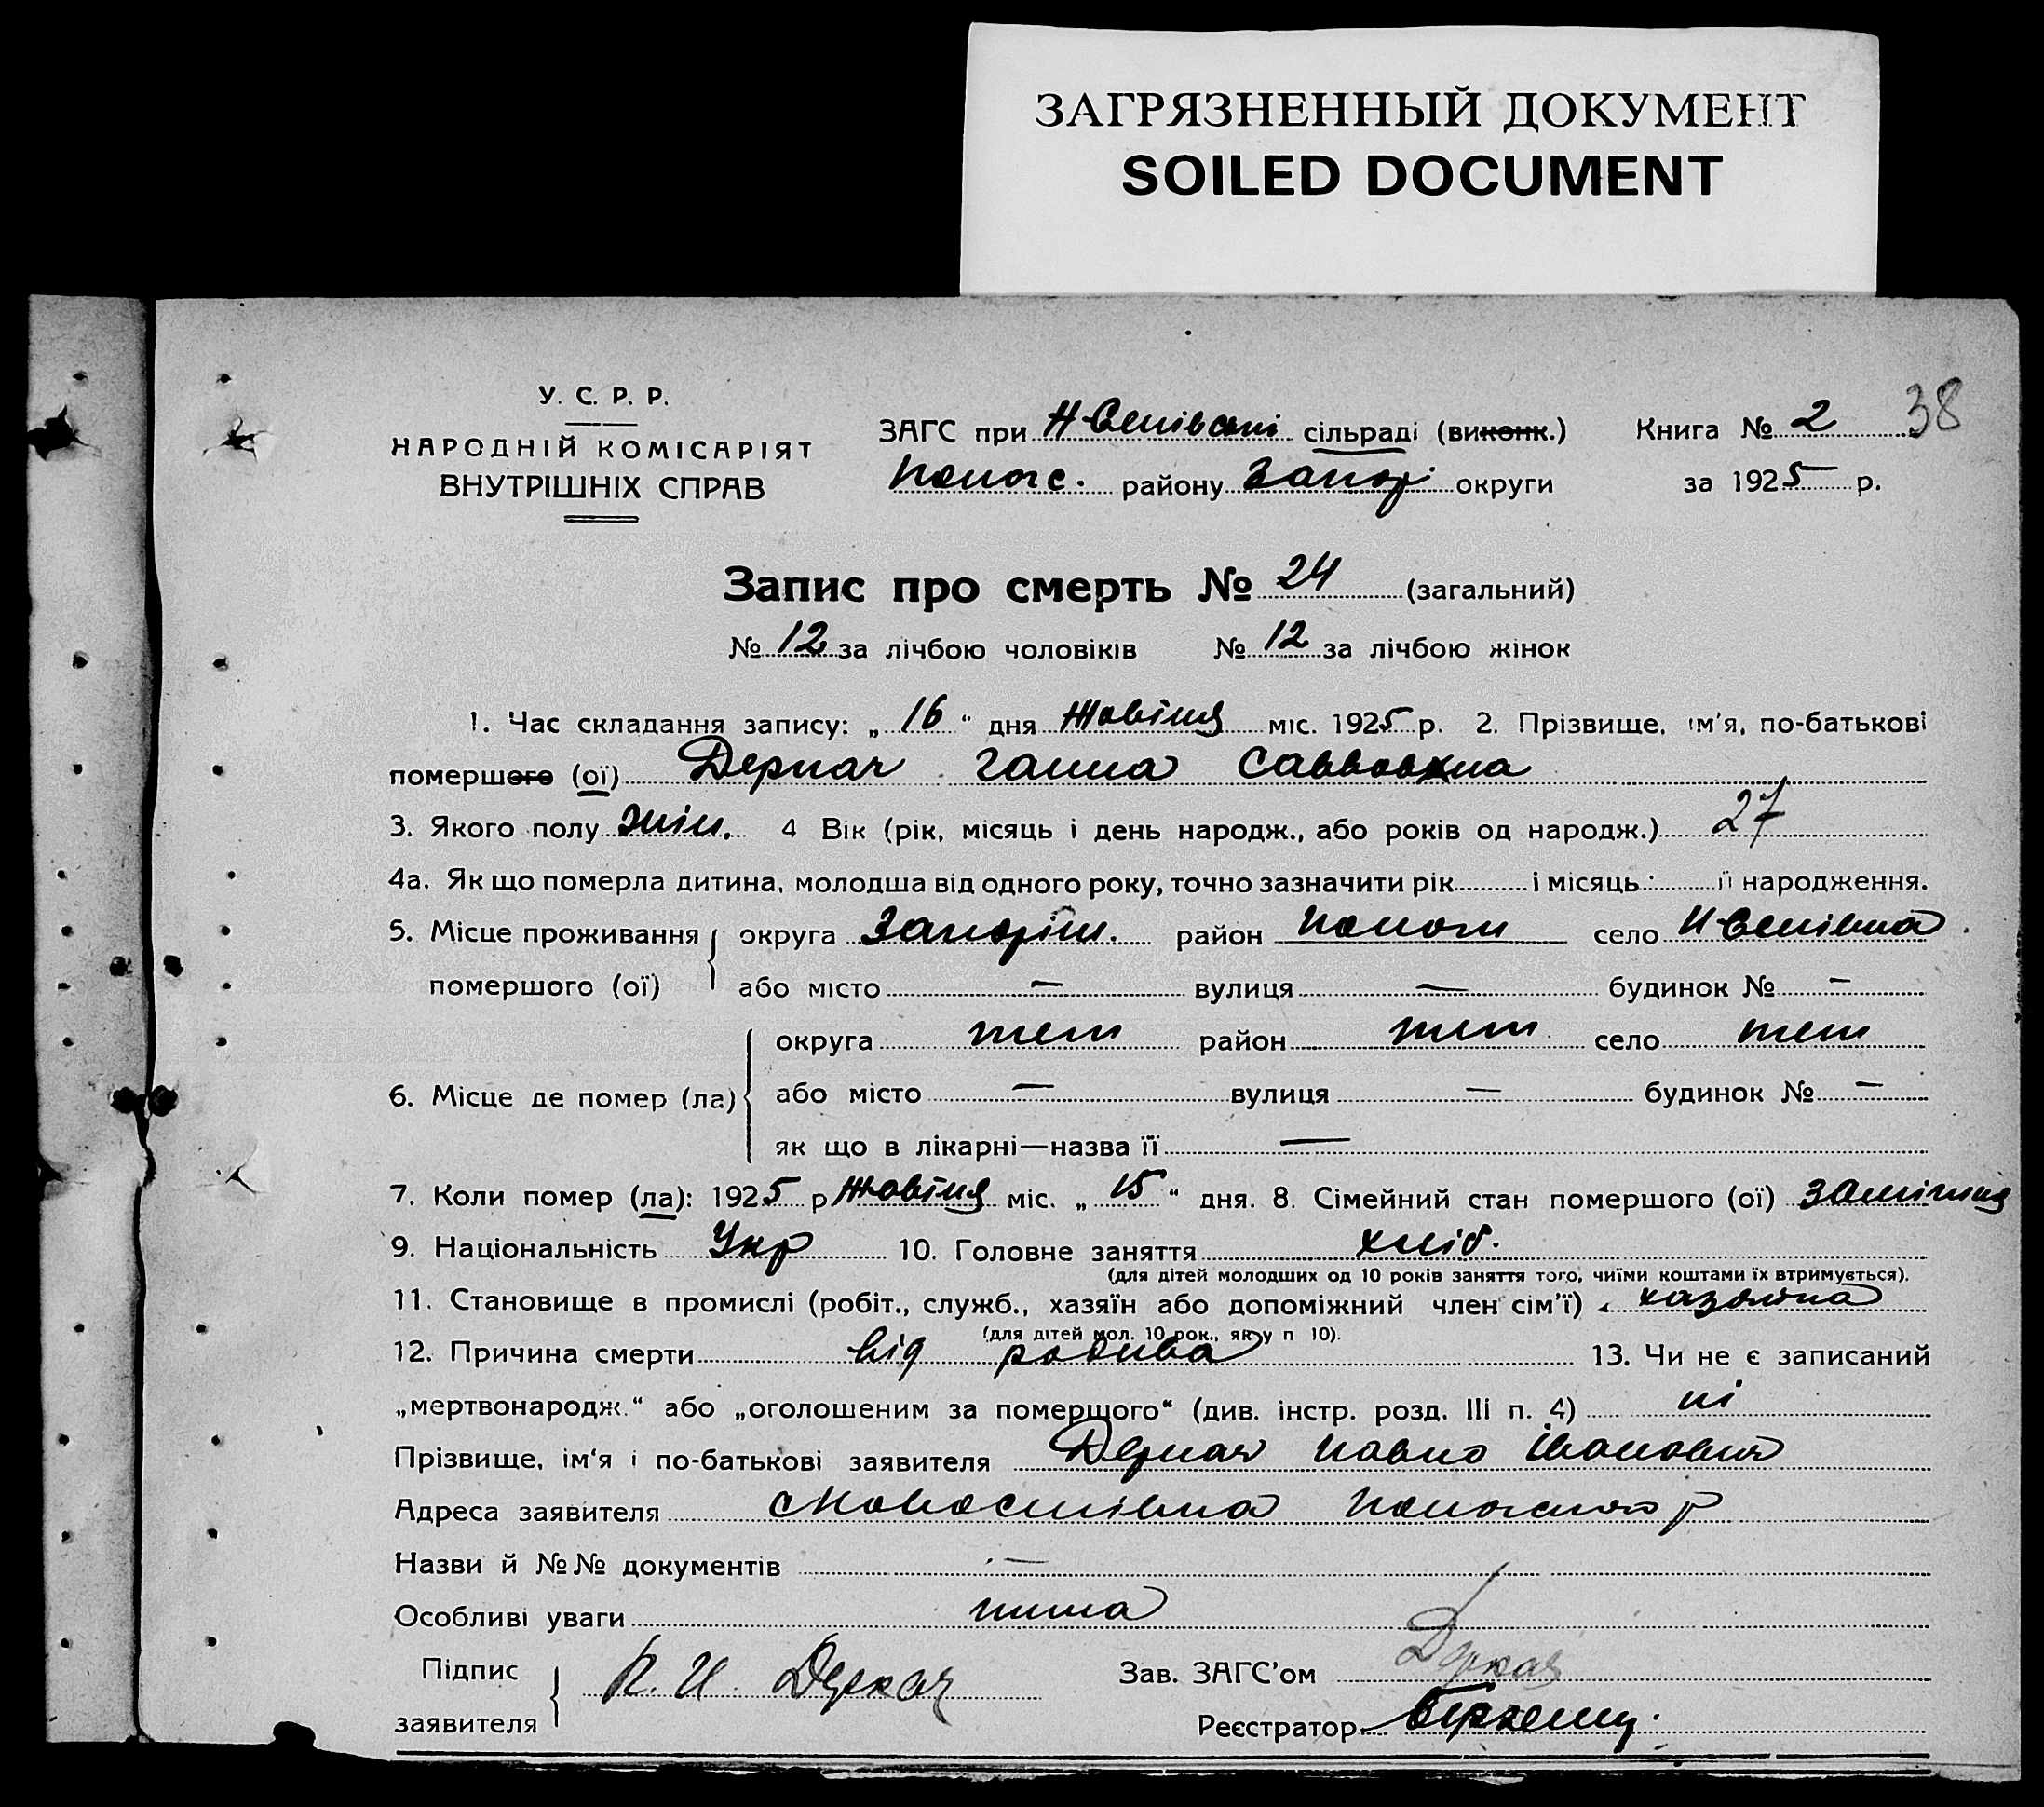 ЗАГРЯЗНЕННЫЙ ДОКУМЕНТ
SOILED DOCUMENT
У. С. Р. Р.
НАРОДНІЙ КОМІСАРІЯТ
ВНУТРІШНІХ СПРАВ
ЗАГС при сільраді (виконк.) Книга № 2 38
Полог. району Запор округи за 1925 р.
Запис про смерть № 24 (загальний)
№ 12 за лічбою чоловіків № 12 за лічбою жінок
1. Час складання запису: „ 16 “ дня Жовтня міс. 1925 р. 2. Прізвище, ім’я, по-батькові
помершого (ої) Деркач Ганна Савовна
3. Якого полу жін. 4 Вік (рік, місяць і день народж., або років од народж.) 27
4а. Як що померла дитина, молодша від одного року, точно зазначити рік і місяць її народження.
5. Місце проживання округа Запоріж. район Полог село
помершого (ої) або місто — вулиця — будинок № —
округа теж район теж село теж
6. Місце де помер (ла) або місто — вулиця — будинок № —
як що в лікарні—назва її —
7. Коли помер (ла): 1925 р Жовтня міс. „ 15 “ дня. 8. Сімейний стан помершого (ої) заміжня
9. Національність Укр 10. Головне заняття хліб.
(для дітей молодших од 10 років заняття того, чиїми коштами їх втримується).
11. Становище в промислі (робіт., служб., хазяїн або допоміжний член сім’ї) хазяйка
(для дітей мол. 10 рок., як у п 10).
12. Причина смерти від родива 13. Чи не є записаний
„мертвонародж.“ або „оголошеним за померщого“ (див. інстр. розд. III п. 4) ні
Прізвище, ім‘я і по-батькові заявителя Деркач Павло Іванович
Адреса заявителя Пологського р
Назви й №№ документів —
Особливі уваги нима
Підпис П. И. Деркач Зав. ЗАГС’ом Деркач
заявителя Реєстратор